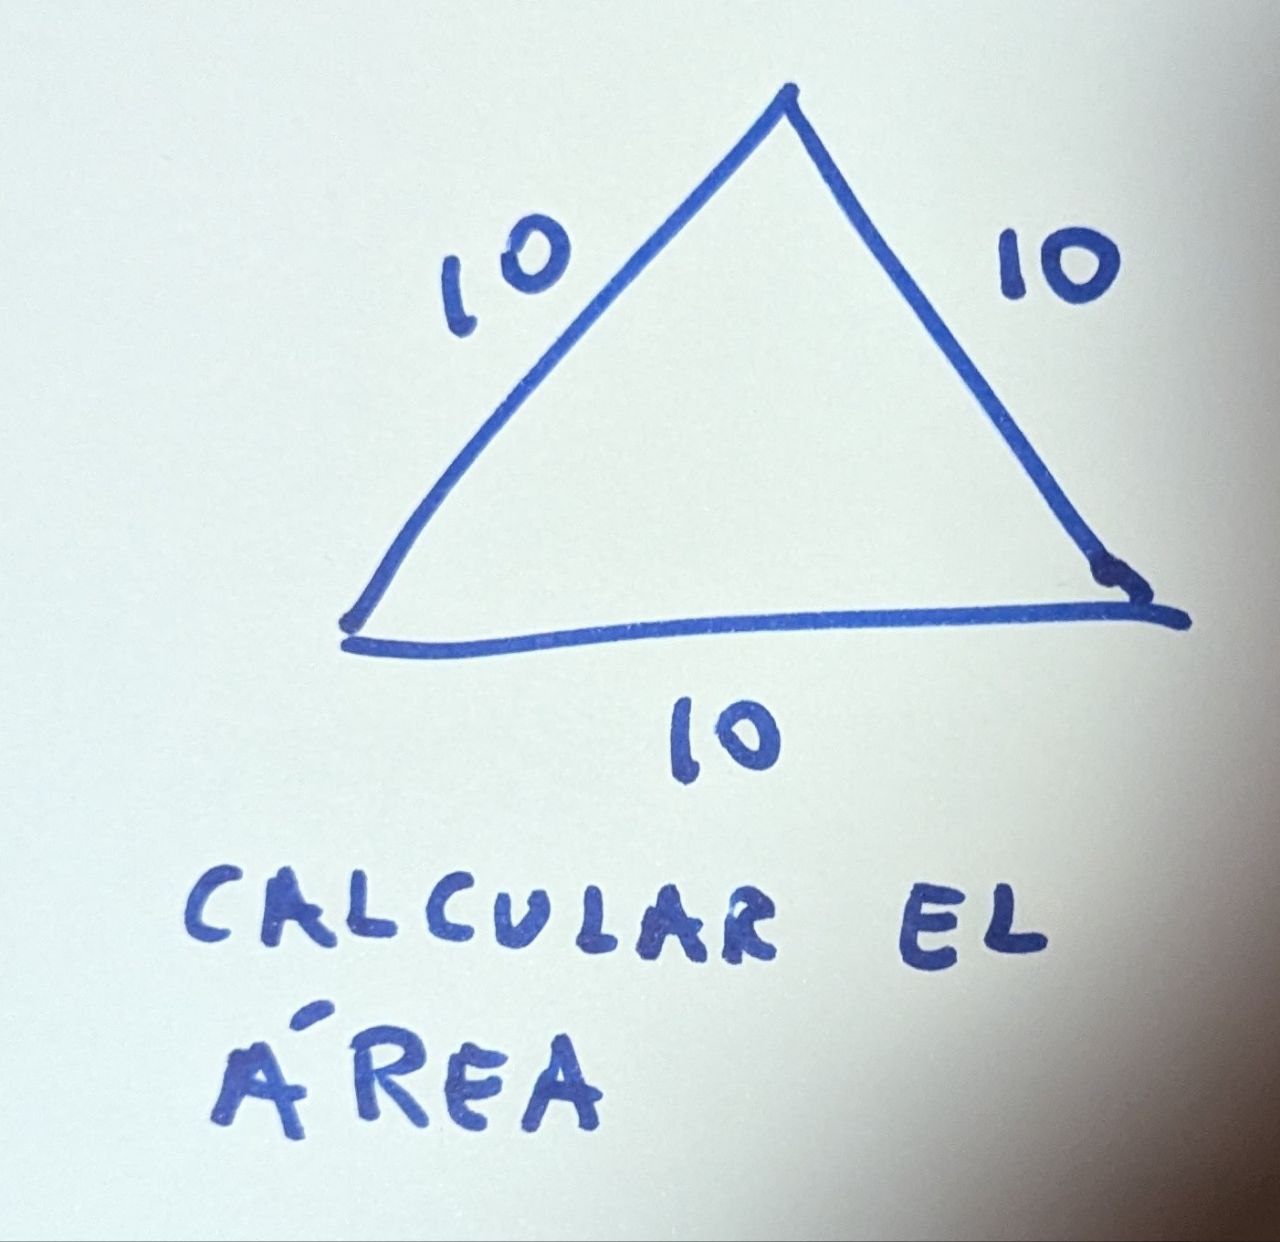 10
10
10
CALCULAR EL
ÁREA